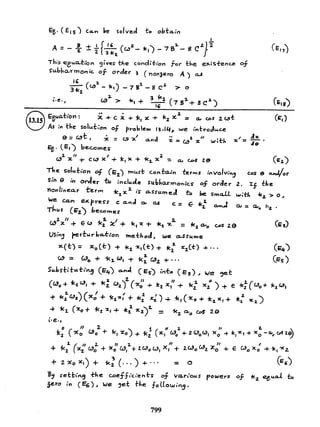 Eq. (E₁₅) can be solved to obtain
A = - B/2 ± 1/2 { 16/(3 k₂) (ω² - k₁) - 7 B² - 8 C² }^(1/2) (E₁₇)
This equation gives the condition for the existence of
subharmonic of order 3 (nonzero A) as
16/(3 k₂) (ω² - k₁) - 7 B² - 8 C² > 0
i.e., ω² > k₁ + 3 k₂/16 (7 B² + 8 C²) (E₁₈)
13.15 Equation: ẍ + c ẋ + k₁ x + k₂ x² = a cos 2ωt (E₁)
As in the solution of problem 13.14, we introduce
θ = ωt, ẋ = ω x' and ẍ = ω² x'' with x' = dx/dθ.
Eq. (E₁) becomes
ω² x'' + c ω x' + k₁ x + k₂ x² = a cos 2θ (E₂)
The solution of (E₂) must contain terms involving cos θ and/or
sin θ in order to include subharmonics of order 2. If the
nonlinear term k₂ x² is assumed to be small with k₂ > 0,
we can express c and a as c = ϵ k₂ and a = a₀ k₂.
Thus (E₂) becomes
ω² x'' + ϵ ω k₂ x' + k₁ x + k₂ x² = k₂ a₀ cos 2θ (E₃)
Using perturbation method, we assume
x(t) = x₀(t) + k₂ x₁(t) + k₂² x₂(t) + ··· (E₄)
ω = ω₀ + k₂ ω₁ + k₂² ω₂ + ··· (E₅)
Substituting (E₄) and (E₅) into (E₃), we get
(ω₀ + k₂ ω₁ + k₂² ω₂)² (x₀'' + k₂ x₁'' + k₂² x₂'') + ϵ k₂ (ω₀ + k₂ ω₁
+ k₂² ω₂)(x₀' + k₂ x₁' + k₂² x₂') + k₁ (x₀ + k₂ x₁ + k₂² x₂)
+ k₂ (x₀ + k₂ x₁ + k₂² x₂)² = k₂ a₀ cos 2θ
i.e.,
k₂⁰ (x₀'' ω₀² + k₁ x₀) + k₂¹ (x₁'' ω₀² + 2 ω₀ ω₁ x₀'' + k₁ x₁ + x₀² - a₀ cos 2θ)
+ k₂² (x₂'' ω₀² + x₀'' ω₁² + 2 ω₀ ω₁ x₁'' + 2 ω₀ ω₂ x₀'' + ϵ ω₀ x₀' + k₁ x₂
+ 2 x₀ x₁) + k₂³ (···) + ··· = 0 (E₆)
By setting the coefficients of various powers of k₂ equal to
zero in (E₆), we get the following.
799